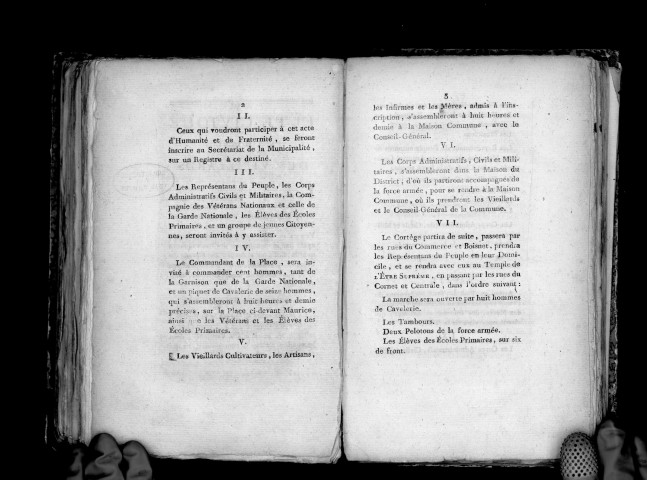 2
II.
Ceux qui voudront participer à cet acte
d'Humanité et de Fraternité, se feront
inscrire au Secrétariat de la Municipalité,
sur un Registre à ce destiné.
III.
Les Représentans du Peuple, les Corps
Administratifs Civils et Militaires, la Com-
pagnie des Vétérans Nationaux et celle de
la Garde Nationale, les Élèves des Écoles
Primaires, et un groupe de jeunes Citoyen-
nes, seront invités à y assister.
IV.
Le Commandant de la Place, sera in-
vité à commander cent hommes, tant de
la Garnison que de la Garde Nationale,
et un piquet de Cavalerie de seize hommes,
qui s'assembleront à huit heures et demie
précises, sur la Place ci-devant Maurice,
ainsi que les Vétérans et les Élèves des
Écoles Primaires.
V.
Les Vieillards Cultivateurs, les Artisans,
3
les Infirmes et les Mères, admis à l'ins-
cription, s'assembleront à huit heures et
demie à la Maison Commune, avec le
Conseil-Général.
VI.
Les Corps Administratifs, Civils et Mili-
taires, s'assembleront dans la Maison du
District, d'où ils partiront accompagnés de
la force armée, pour se rendre à la Maison
Commune, où ils prendront les Vieillards
et le Conseil-Général de la Commune.
VII.
Le Cortège partira de suite, passera par
les rues du Commerce et Boisnet, prendra
les Représentans du Peuple en leur Domi-
cile, et se rendra avec eux au Temple de
l'ÊTRE SUPRÊME, en passant par les rues du
Cornet et Centrale, dans l'ordre suivant:
La marche sera ouverte par huit hommes
de Cavelerie.
Les Tambours.
Deux Pelotons de la force armée.
Les Élèves des Écoles Primaires, sur six
de front.